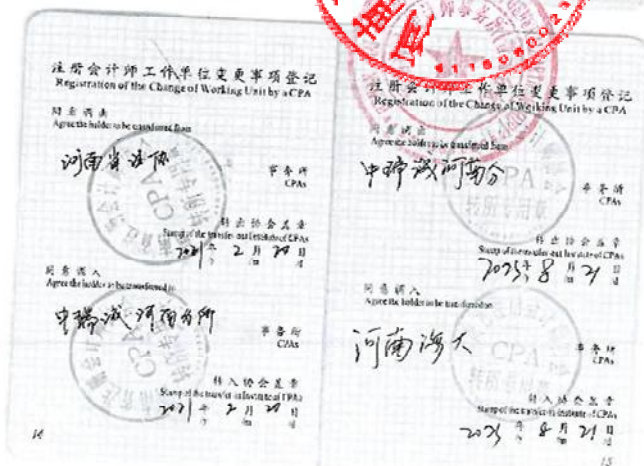 注册会计师工作单位变更事项登记
Registration of the Change of Working Unit by a CPA
同意调出
Agree the holder to be transferred from
河南省注协
事务所
CPAs
转出协会盖章
Stamp of the transfer-out Institute of CPAs
2021年 2月 20日
同意调入
Agree the holder to be transferred to
中瑞诚河南分所
事务所
CPAs
转入协会盖章
Stamp of the transfer-in Institute of CPAs
2021年 2月 20日
14
注册会计师工作单位变更事项登记
Registration of the Change of Working Unit by a CPA
同意调出
Agree the holder to be transferred from
中瑞诚河南分
事务所
CPAs
CPA
转所专用章
转出协会盖章
Stamp of the transfer-out Institute of CPAs
2025年 8月 21日
同意调入
Agree the holder to be transferred to
河南
事务所
CPAs
CPA
转所专用章
转入协会盖章
Stamp of the transfer-in Institute of CPAs
2025年 8月 21日
15